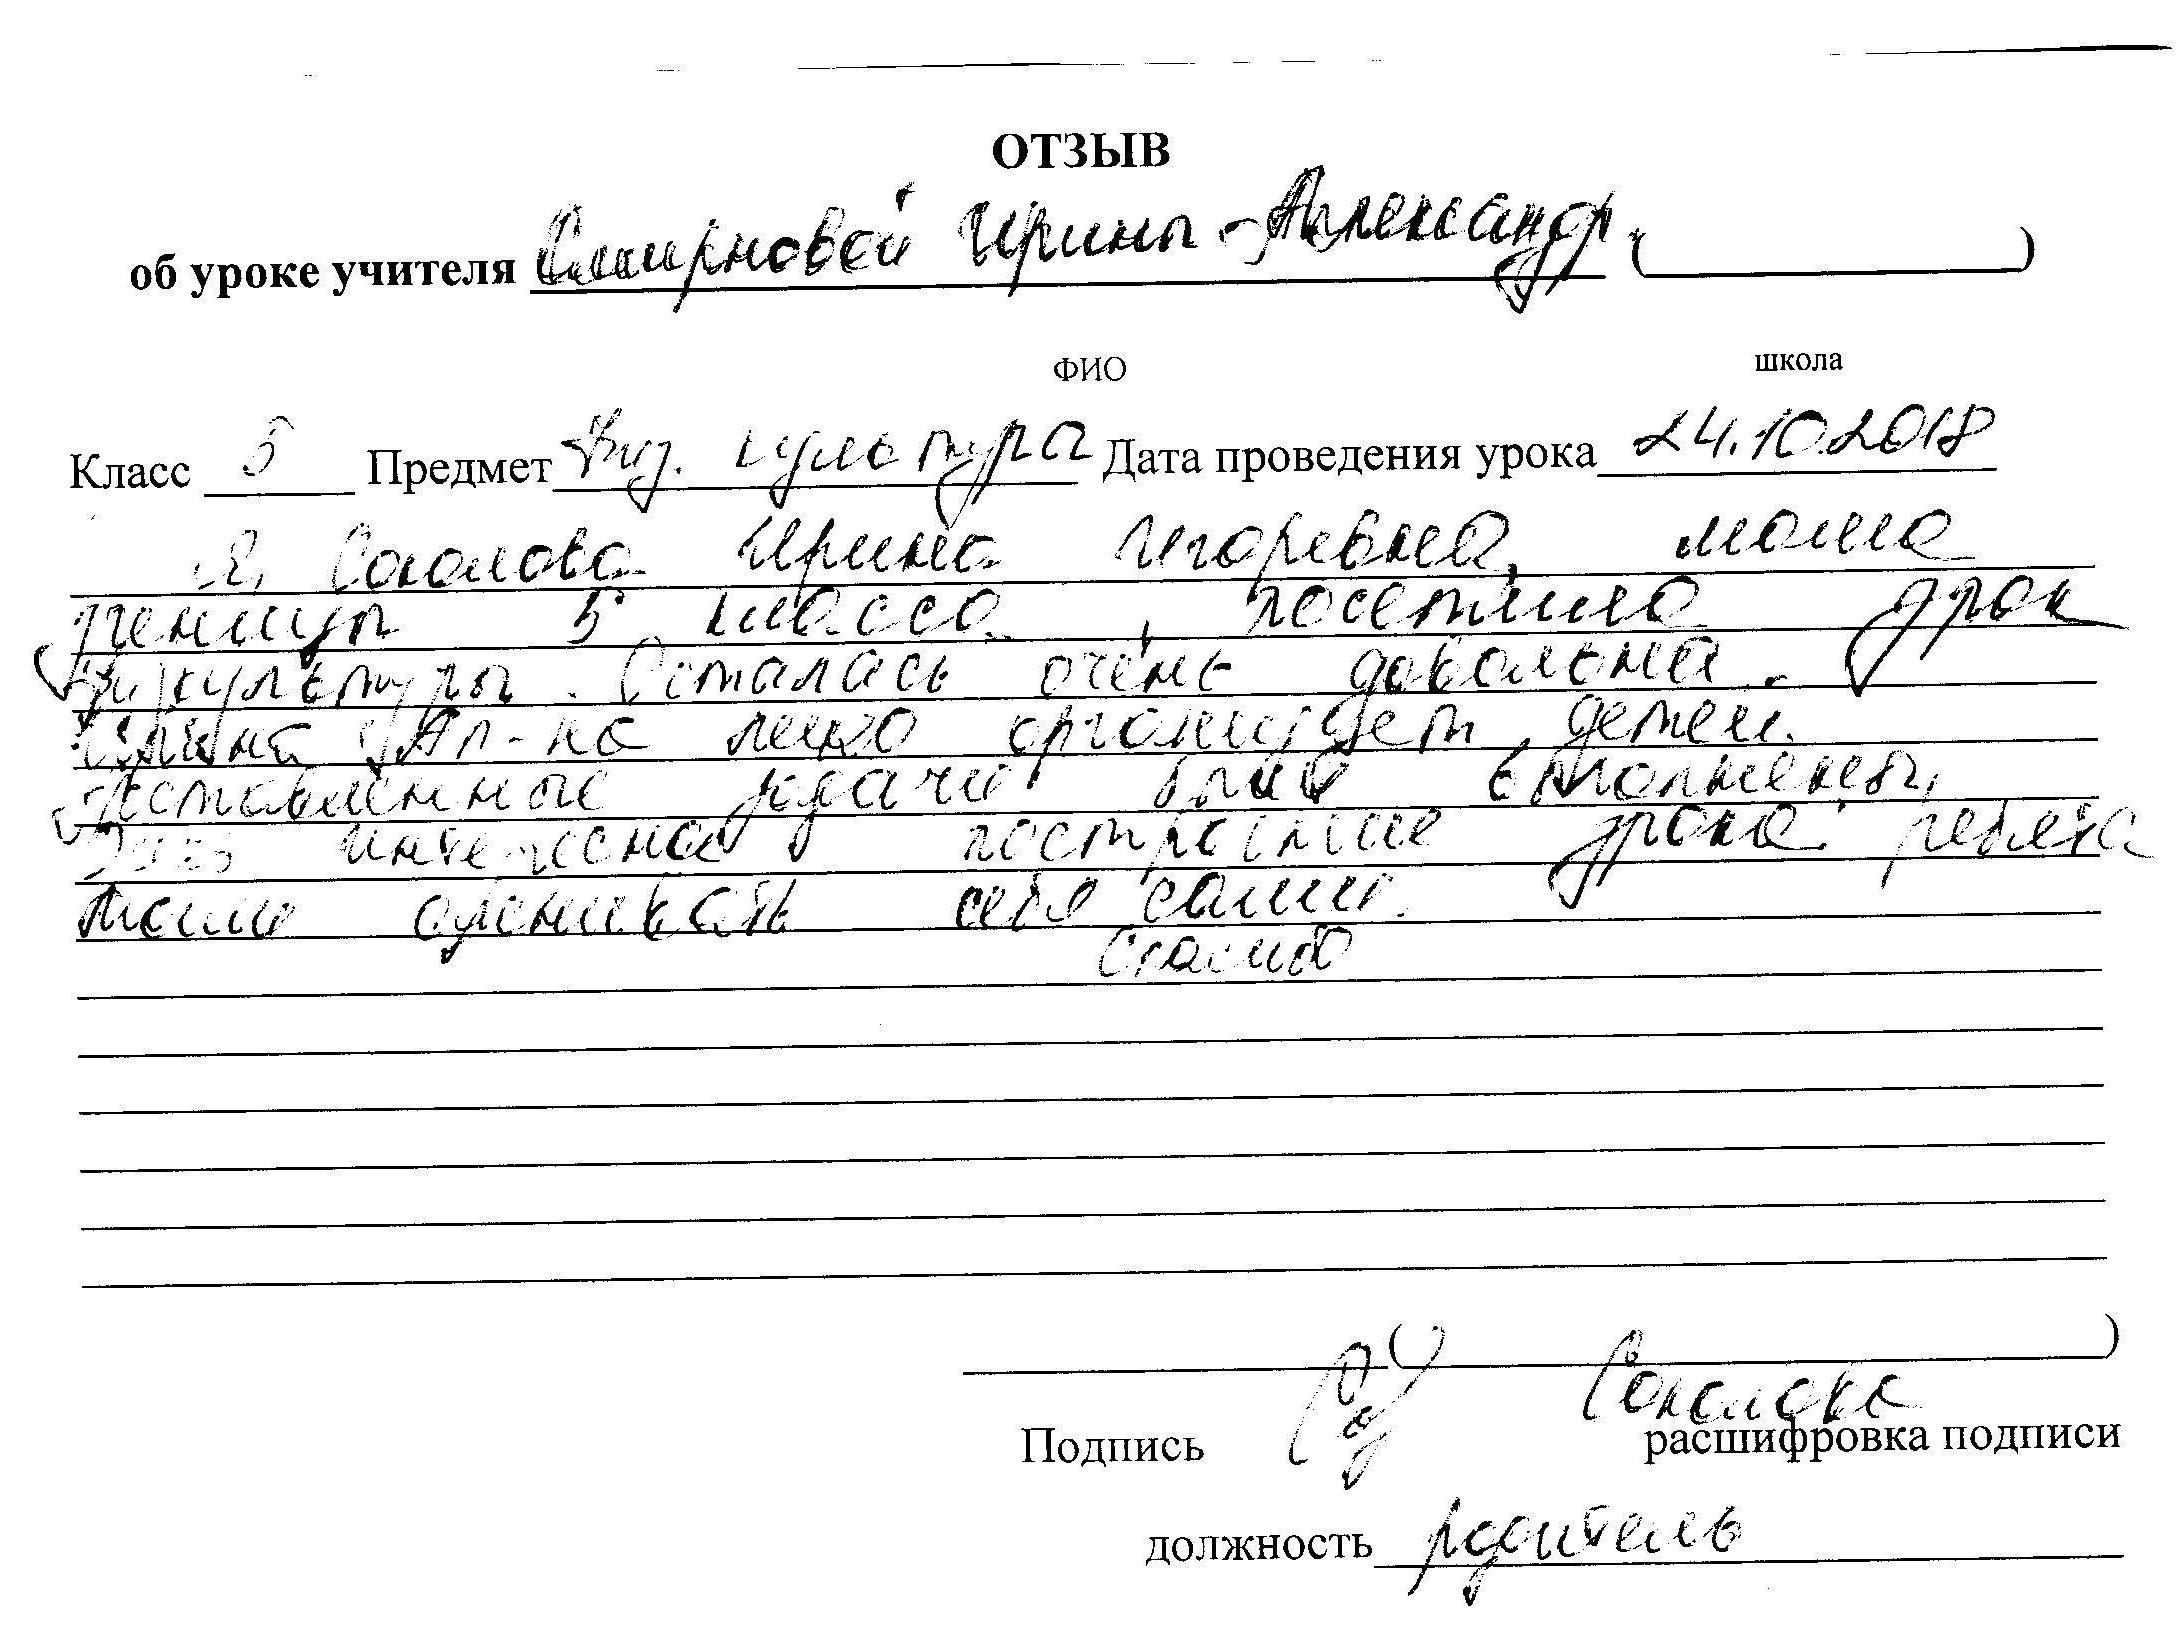 ОТЗЫВ
об уроке учителя Смирновой Ирины Александр. ( )
ФИО школа
Класс 5 Предмет Физ. культуры Дата проведения урока 24.10.2018
Я, Соколова Ирина Игоревна, мама
ученицы 5 класса, посетила урок
физкультуры. Осталась очень довольна.
Ирина Ал-на легко организует детей.
Поставленные задачи были выполнены,
интересное построение урока, ребята
оценивать себя сами.
Спасибо
( )
Соколова
Подпись расшифровка подписи
должность родитель